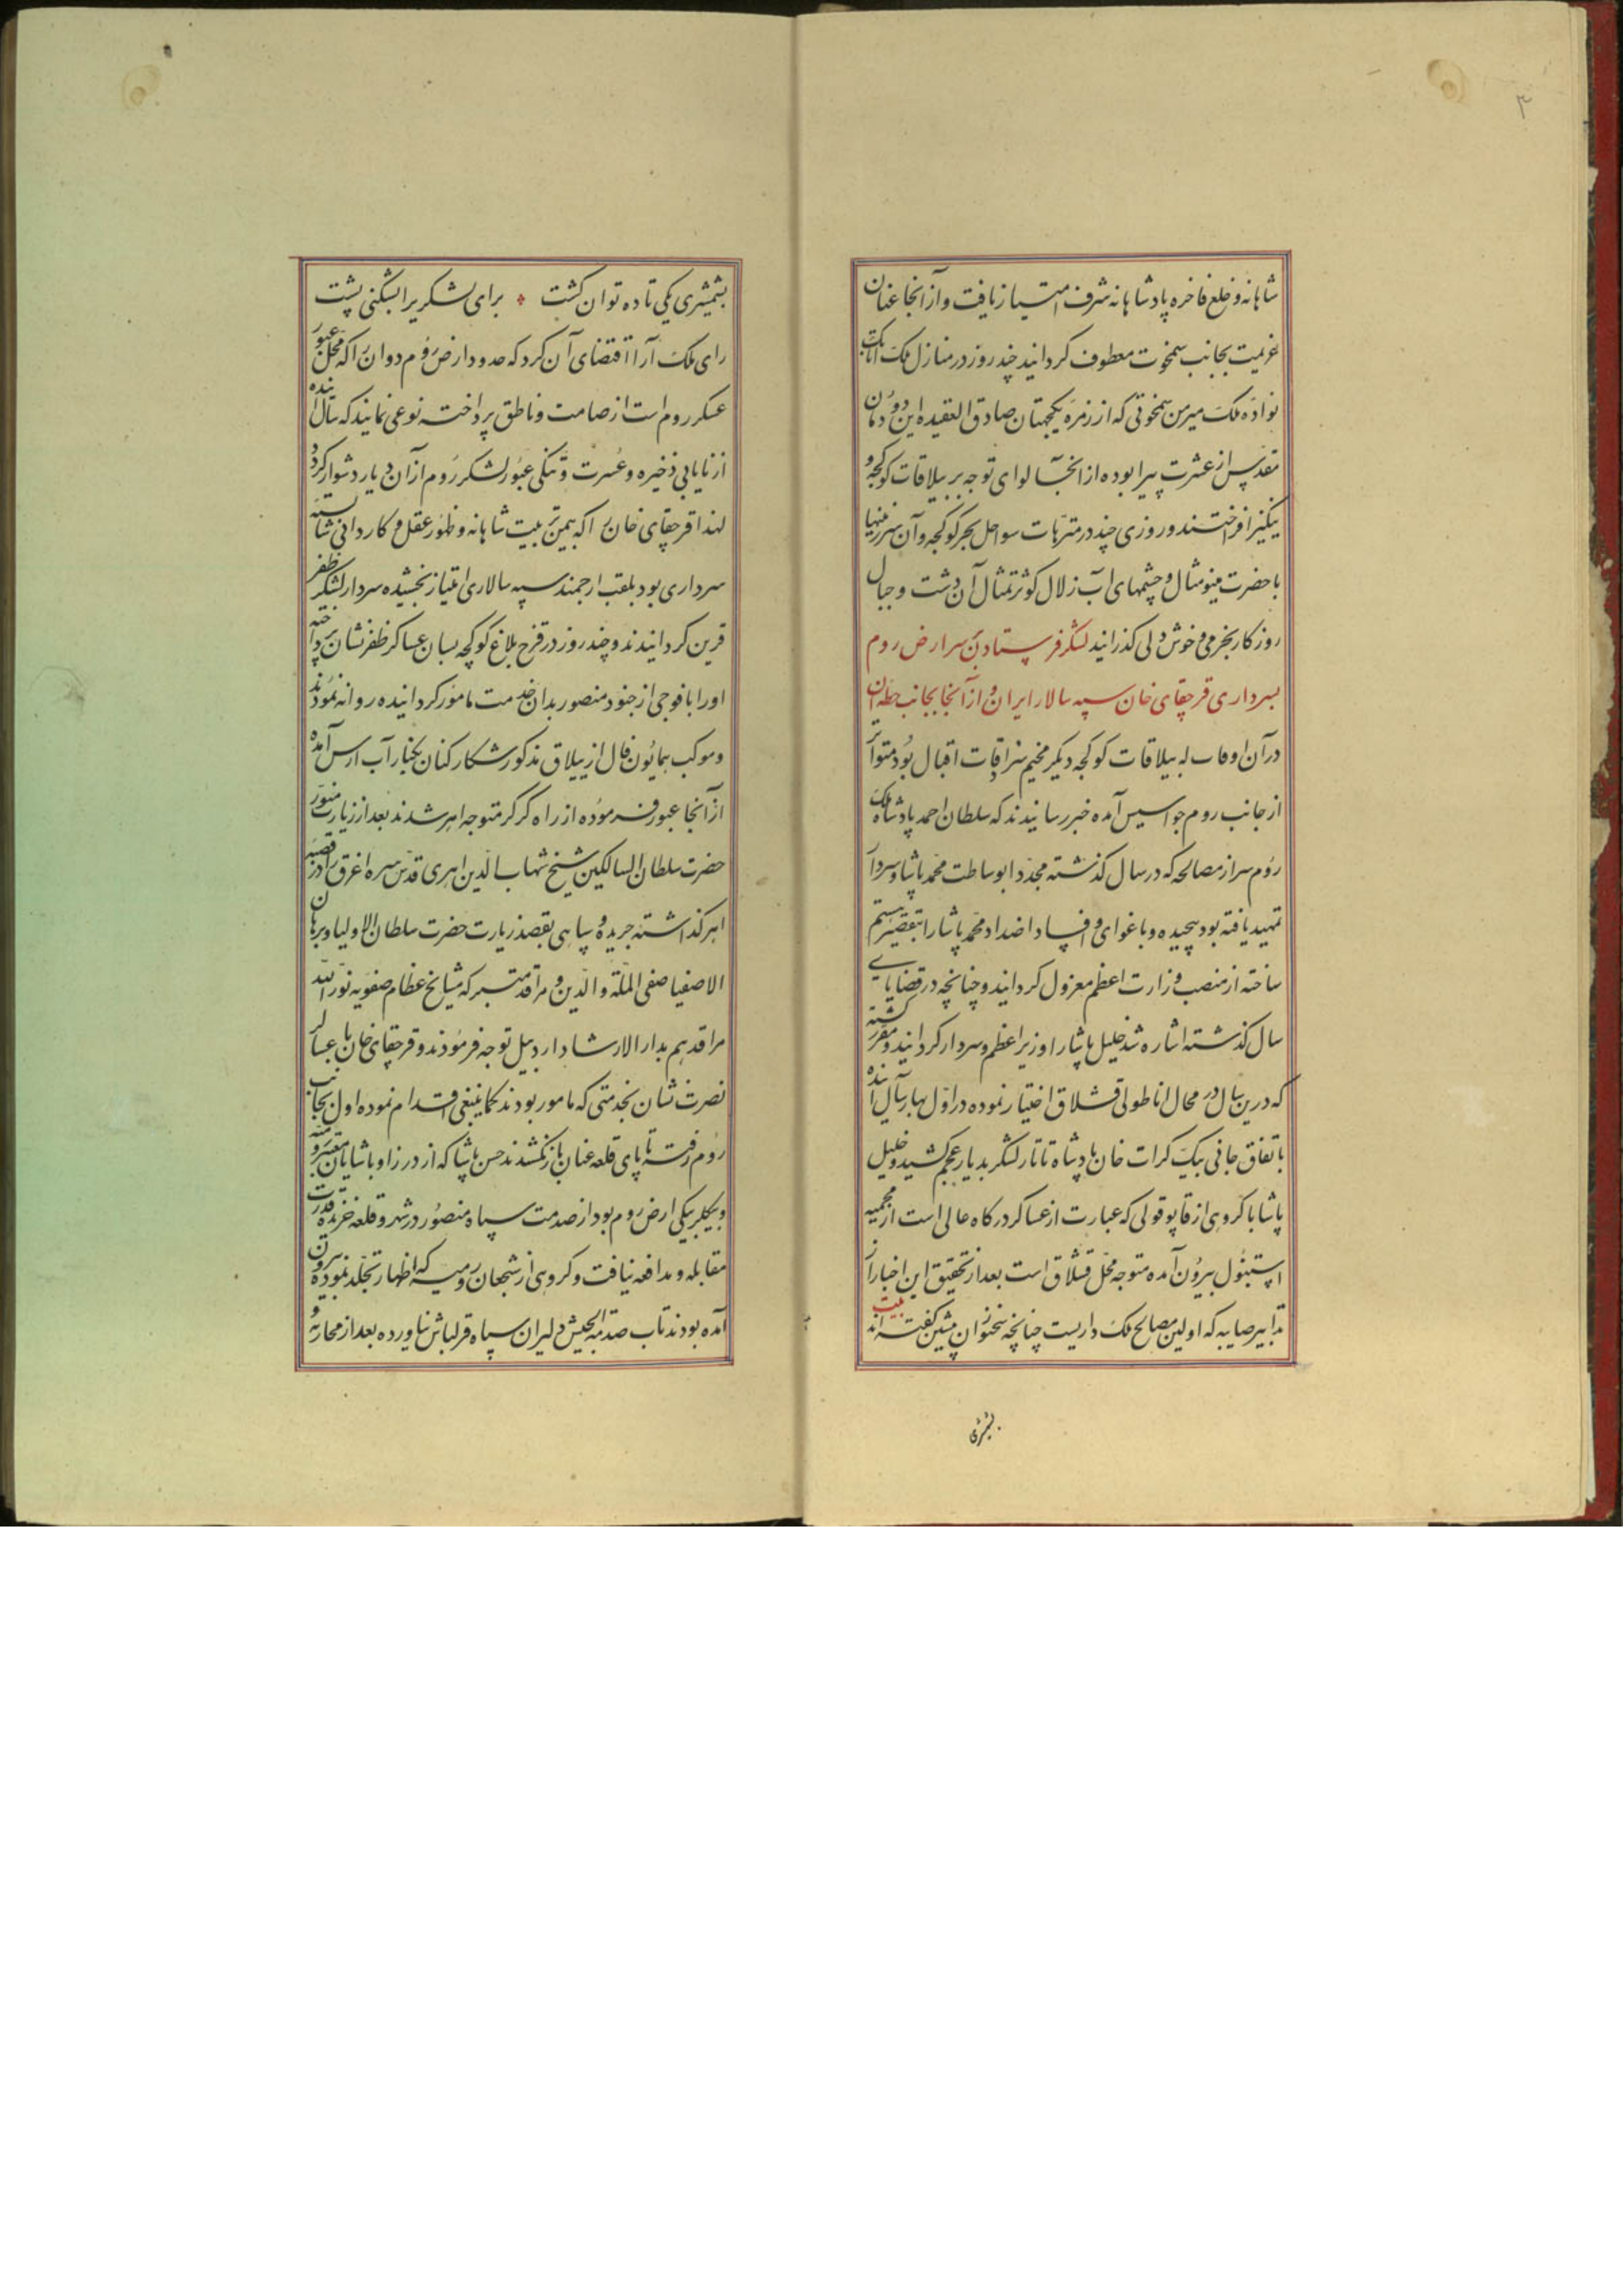 ۳
شاهانه و خلع فاخره پادشاهانه شرف امتیاز یافت و از آنجا عنان
عزیمت بجانب سمخوت معطوف کردانید چند روز در منازل ملک اتابک
نواده ملک میرمن سمخوتی که از زمره یکجهتان صادق العقیده این دودمان
مقدس از عشرت پیرا بوده از انجا لوای توجه بر ییلاقات کوکجه و
یتکیز افراختند و روزی چند در متنزهات سواحل بحر کوکجه و آن سرزمینها
باحضرت مینومثال و چشمهای آب زلال کوثر تمثال آن دشت و جبال
روزکار بخرمی و خوش دلی کذرانیدند لشکر فرستادن بسر ارض روم
بسرداری قرچقای خان سپه سالار ایران و از آنجا بجانب خطه ان
در آن اوقات که ییلاقات کوکجه دیکر مخیم سرادقات اقبال بود متواتر
از جانب روم جواسیس آمده خبر رسانیدند که سلطان احمد پادشاه ملک
روم سر از مصالحه که در سال کذشته مجددا بوساطت محمد پاشا و سردار
تمهید یافته بود پیچیده و باغوای و افساد اضداد محمد پاشا را بتقصیر متهم
ساخته از منصب وزارت اعظم معزول کردانید و چنانچه در قضایای
سال کذشته اشاره شد خلیل پاشا را وزیر اعظم و سردار کردانید و مقرر کشته
که درین سال در محال اناطولی قشلاق اختیار نموده در اول بهار سال آینده
باتفاق جانی بیک کرات خان پادشاه تاتار لشکر بدیار عجم کشید و خلیل
پاشا با کروهی از قاپوقولی که عبارت از عساکر درکاه عالی است از محمیه
استنبول بیرون آمده متوجه محل قشلاق است بعد از تحقیق این اخبار از
تدابیر صایبه که اولین مصالح ملک داریست چنانچه سخنوران پیشین کفته اند بیت
بشمشیری
بشمشیری یکی تا ده توان کشت برای لشکری را بشکنی پشت
رای ملک آرا اقتضای آن کرد که حدود ارض روم و وان را که محل عبور
عسکر روم است از صامت و ناطق پرداخته نوعی نمایند که سال آینده
از نایابی ذخیره و عسرت و تنکی عبور لشکر روم از آن دیار دشوار کردد
لهذا قرچقای خان را که بیمن تربیت شاهانه و ظهور عقل و کاردانی شایسته
سرداری بود بلقب ارجمند سپه سالاری امتیاز بخشیده سردار لشکر ظفر
قرین کردانیدند و چند روز در قرخ بلاغ کوکجه بسان عساکر ظفر نشان پرداخته
اورا با فوجی از جنود منصور بدان خدمت مامور کردانیده روانه نمودند
و موکب همایون فال از ییلاق مذکور شکار کنان بکنار آب ارس آمده
از آنجا عبور فرموده از راه کرکر متوجه اهر شدند بعد از زیارت منور
حضرت سلطان السالکین شیخ شهاب الدین اهری قدس سره اغرق را در قصبه
اهر کذاشته جریده و سپاهی بقصد زیارت حضرت سلطان الاولیا و برهان
الاصفیا صفی الملة والدین و مراقد متبرکه مشایخ عظام صفویه نور الله
مراقدهم بدار الارشاد اردبیل توجه فرمودند و قرچقای خان با عساکر
نصرت نشان بخدمتی که مامور بودند کما ینبغی اقدام نموده اول بجانب
روم رفته تا پای قلعه عنان باز نکشیدند حسن پاشا که از درزاو پاشایان معتبر رومیه
و بیکلربیکی ارض روم بود از صدمت سپاه منصور در شهر و قلعه خزیده قدرت
مقابله و مدافعه نیافت و کروهی از شجعان رومیه که اظهار تجلد نموده بیرون
آمده بودند تاب صدمة الجیش دلیران سپاه قزلباش نیاورده بعد از محاربه و